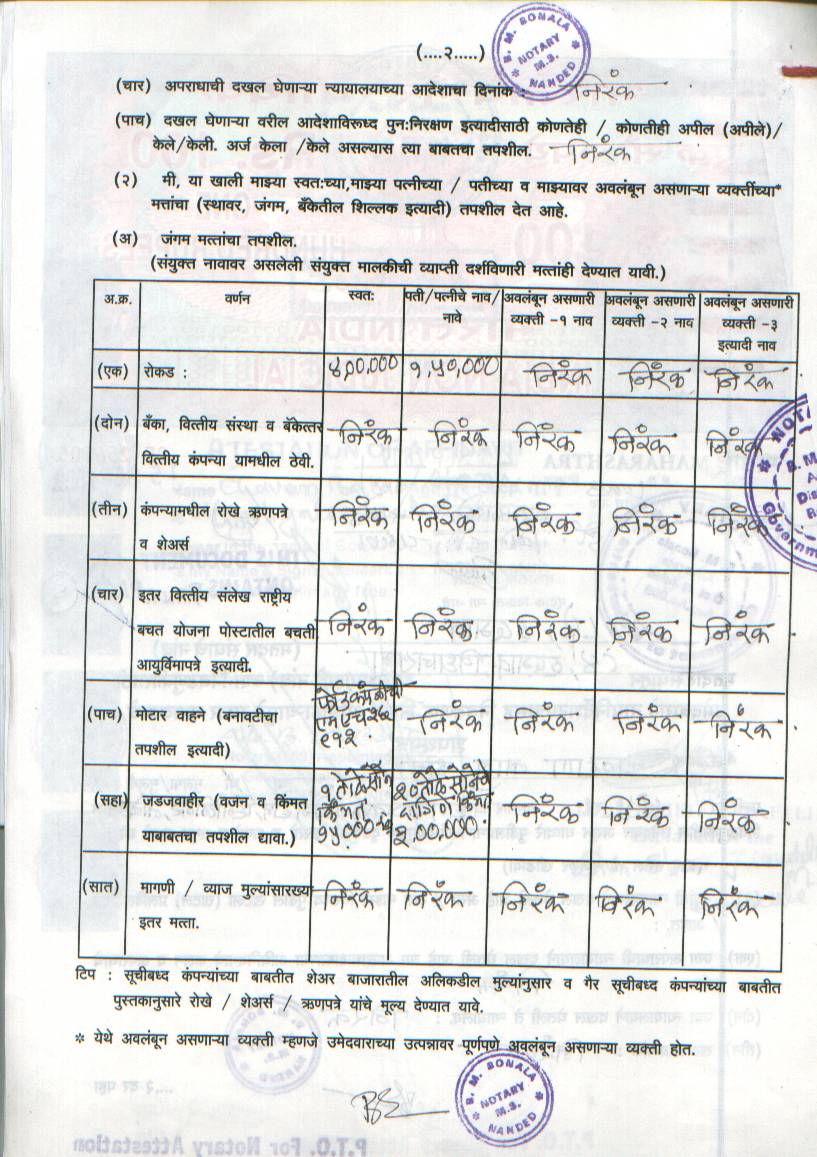 (....२.....)
B. M. BONALA
NOTARY
M.S.
NANDED
(चार) अपराधाची दखल घेणाऱ्या न्यायालयाच्या आदेशाचा दिनांक : निरंक
(पाच) दखल घेणाऱ्या वरील आदेशाविरूध्द पुन:निरक्षण इत्यादीसाठी कोणतेही / कोणतीही अपील (अपीले)/
केले/केली. अर्ज केला /केले असल्यास त्या बाबतचा तपशील. निरंक
(२) मी, या खाली माझ्या स्वत:च्या,माझ्या पत्नीच्या / पतीच्या व माझ्यावर अवलंबून असणाऱ्या व्यक्तींच्या*
मत्तांचा (स्थावर, जंगम, बँकेतील शिल्लक इत्यादी) तपशील देत आहे.
(अ) जंगम मत्तांचा तपशील.
(संयुक्त नावावर असलेली संयुक्त मालकीची व्याप्ती दर्शविणारी मत्तांही देण्यात यावी.)
अ.क्र. वर्णन स्वत: पती/पत्नीचे नाव/ अवलंबून असणारी अवलंबून असणारी अवलंबून असणारी
नावे व्यक्ती -१ नाव व्यक्ती -२ नाव व्यक्ती -३
इत्यादी नाव
(एक) रोकड : ४,००,००० १,५०,००० निरंक निरंक निरंक
(दोन) बँका, वित्तीय संस्था व बँकेत्तर निरंक निरंक निरंक निरंक निरंक
वित्तीय कंपन्या यामधील ठेवी.
(तीन) कंपन्यामधील रोखे ऋणपत्रे निरंक निरंक निरंक निरंक निरंक
व शेअर्स
(चार) इतर वित्तीय संलेख राष्ट्रीय
बचत योजना पोस्टातील बचती निरंक निरंक निरंक निरंक निरंक
आयुर्विमापत्रे इत्यादी.
(पाच) मोटार वाहने (बनावटीचा निरंक निरंक निरंक निरंक
तपशील इत्यादी) एमएच२६
१ तोळे सोने २० तोळे सोनेचे
(सहा) जडजवाहीर (वजंन व किंमत किंमत दागिने किंमत निरंक निरंक निरंक
याबाबतचा तपशील द्यावा.) १५००० ३००,०००
(सात) मागणी / व्याज मुल्यांसारख्या निरंक निरंक निरंक निरंक निरंक
इतर मत्ता.
टिप : सूचीबध्द कंपन्यांच्या बाबतीत शेअर बाजारातील अलिकडील मुल्यांनुसार व गैर सूचीबध्द कंपन्यांच्या बाबतीत
पुस्तकानुसारे रोखे / शेअर्स / ऋणपत्रे यांचे मूल्य देण्यात यावे.
* येथे अवलंबून असणाऱ्या व्यक्ती म्हणजे उमेदवाराच्या उत्पन्नावर पूर्णपणे अवलंबून असणाऱ्या व्यक्ती होत.
B. M. BONALA
NOTARY
M.S.
NANDED